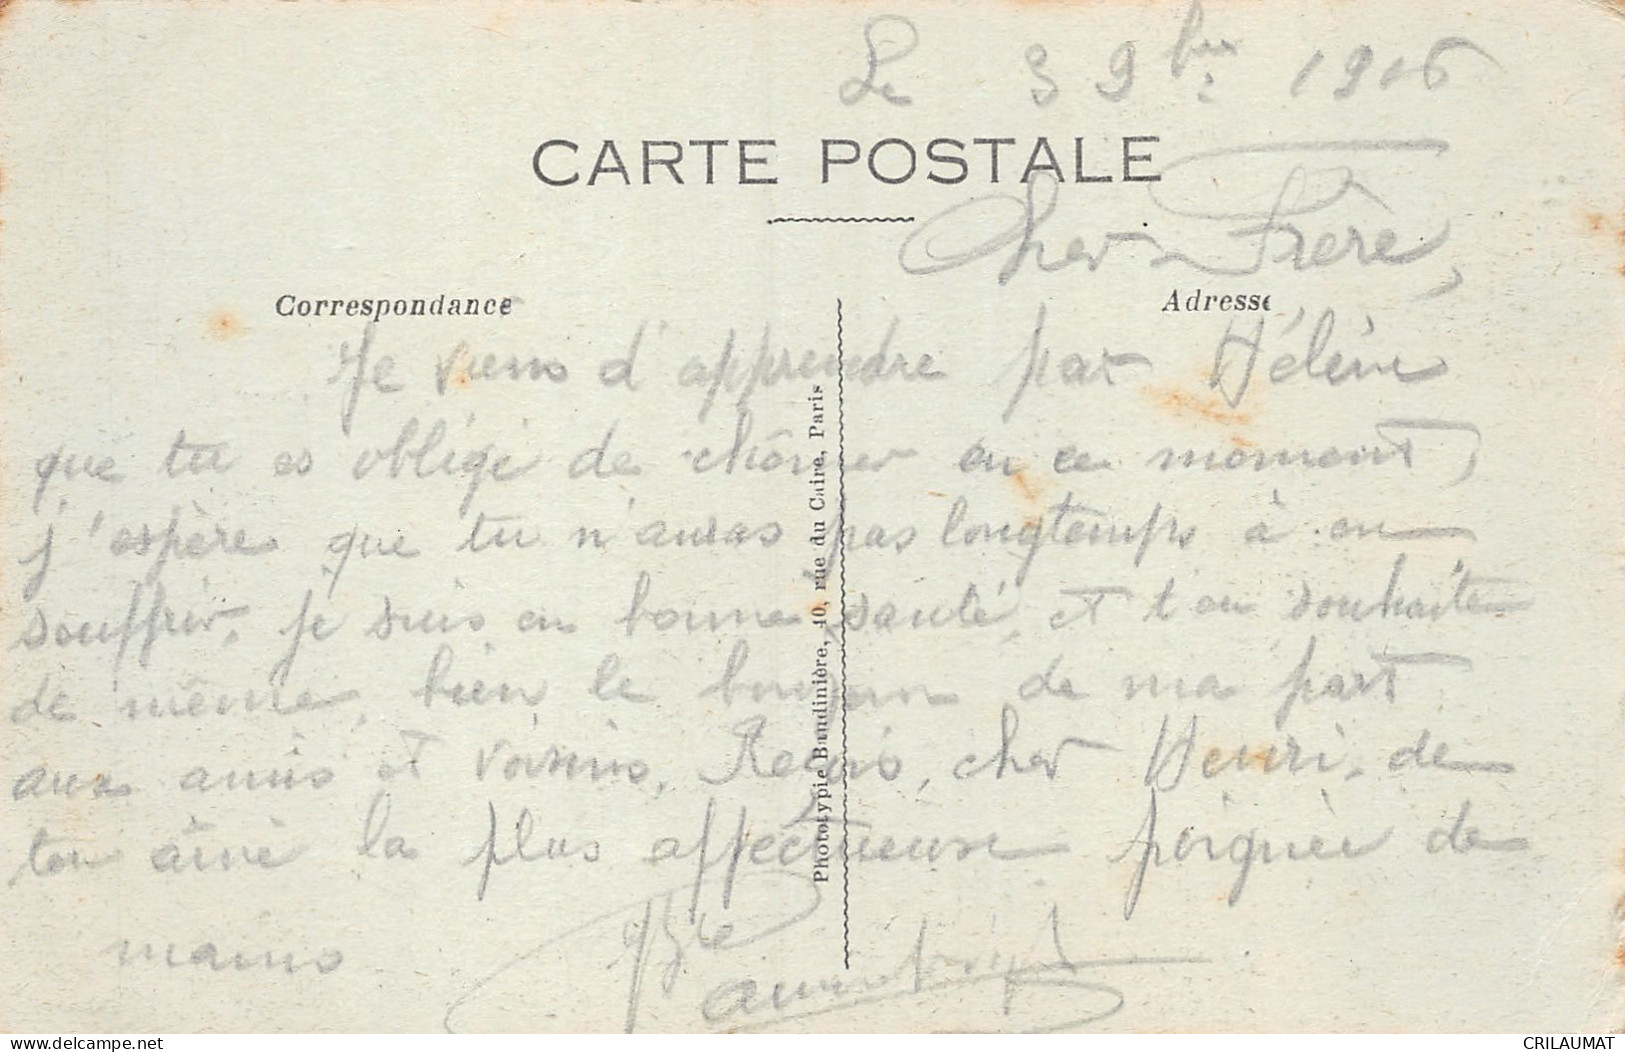 Le 3 9bre 1916
CARTE POSTALE
Cher Frère,
Correspondance
Adresse
Je viens d'apprendre par Hélène
que tu es obligé de chômer en ce moment,
j'espère que tu n'auras pas longtemps à en
souffrir, je suis en bonne santé, et t'en souhaite
de même, bien le bonjour de ma part
aux amis et voisins, Reçois, cher Henri, de
ton aîné la plus affectueuse poignée de
mains
Phototypie Baudinière, 40, rue du Caire, Paris
CRILAUMAT
delcampe.net